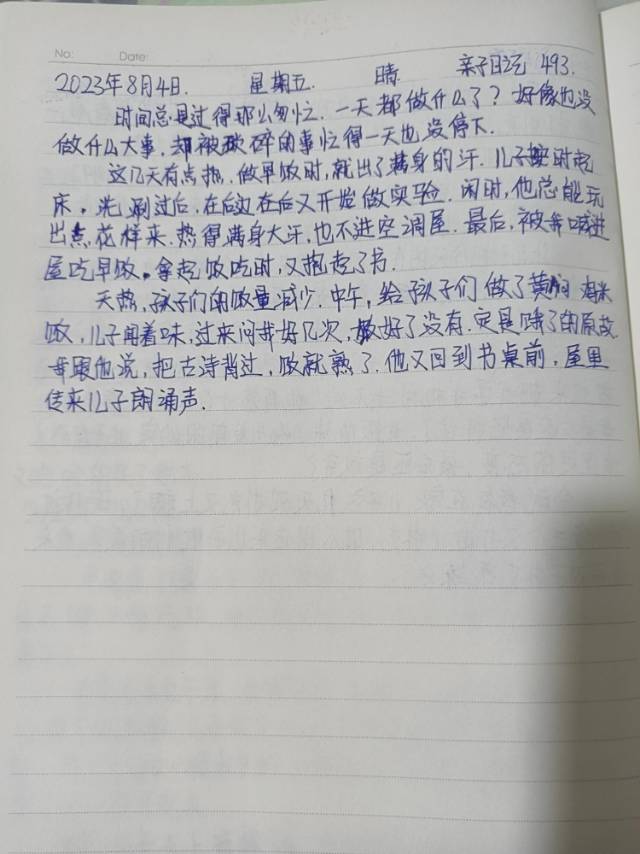 No:  Date:
2023年8月4日. 星期五. 晴 亲子日记 493.
时间总是过得那么匆忙.一天都做什么了?好像也没
做什么大事,却被琐碎的事忙得一天也没停下.
这几天有点热.做早饭时,就出了满身的汗.儿子按时起
床。洗涮过后,在后边在后又开始做实验.闲时,他总能玩
出点花样来.热得满身大汗,也不进空调屋.最后,被我喊进
屋吃早饭。拿起饭吃时,又抱起了书.
天热,孩子们的饭量减少.中午,给孩子们做了黄焖
饭,儿子闻着味,过来问我好几次,做好了没有.定是饿了的原故.
我跟他说,把古诗背过,饭就熟了.他又回到书桌前,屋里
传来儿子朗诵声.